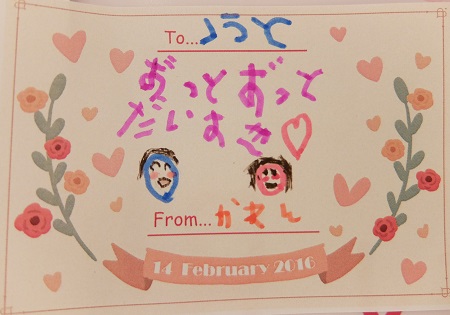 To... ゆうと
ずっとずっと
だいすき♡
From... かれん
14 February 2016